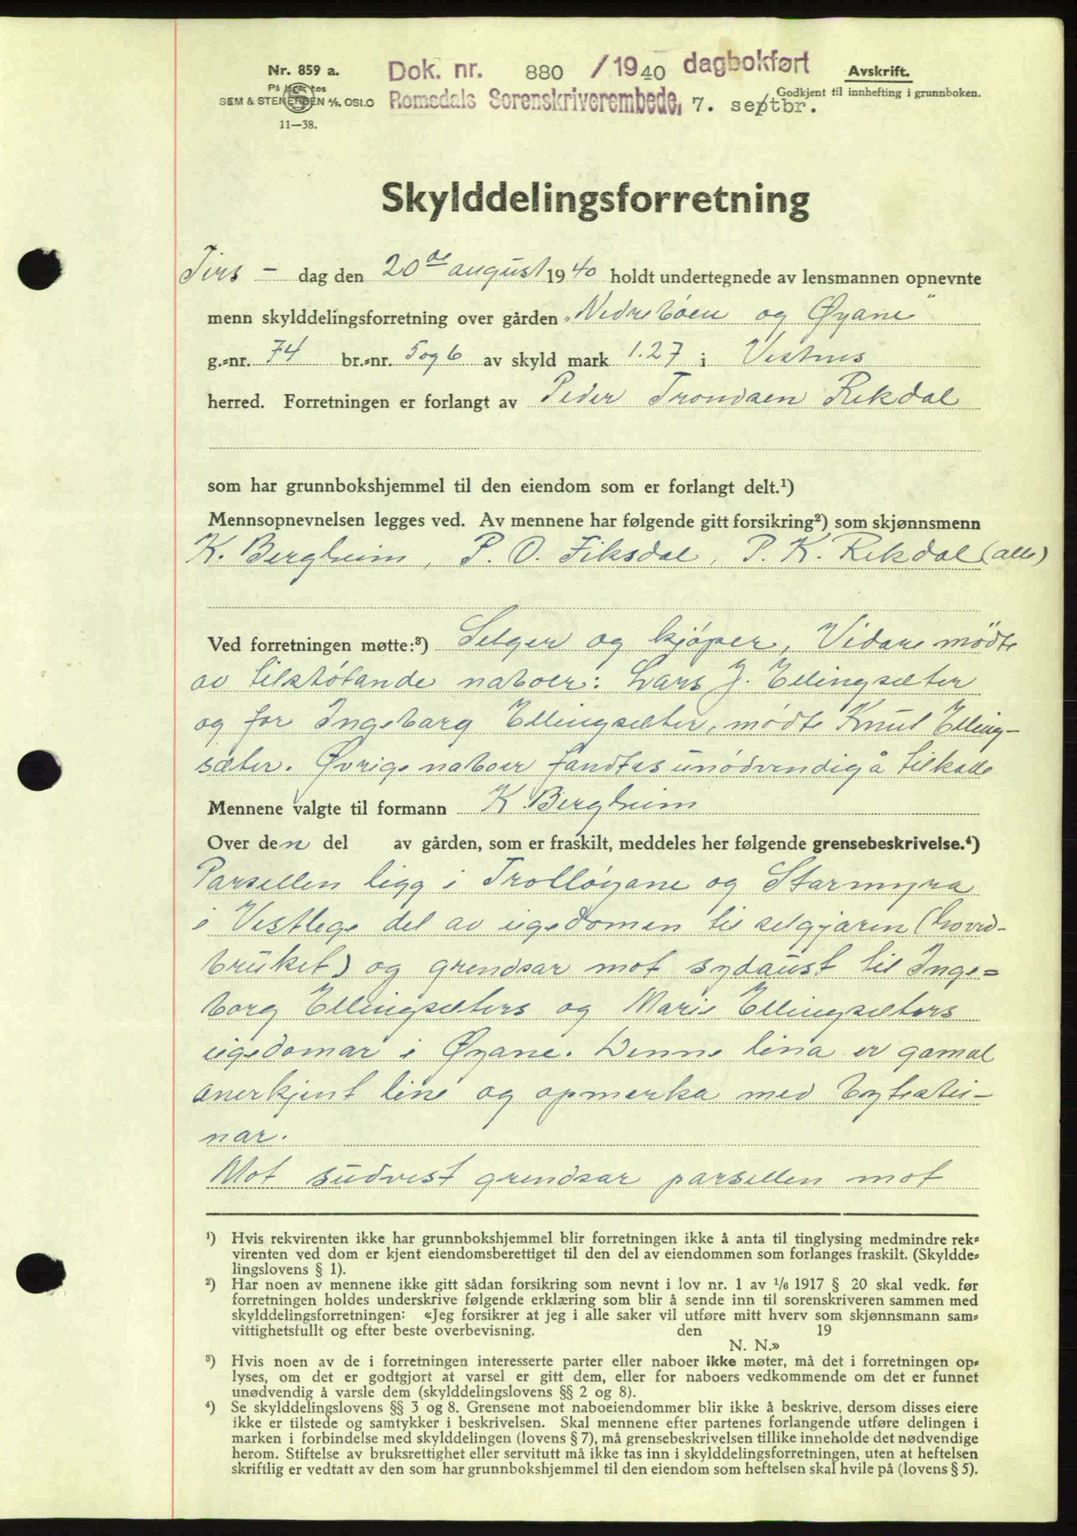 Nr. 859 a.
Dok. nr. 880 /1940 dagbokført
Avskrift.
SEM & STENERSEN A/S. OSLO
Romsdals Sorenskriverembede, 7. septbr.
Godkjent til innhefting i grunnboken.
11—38.
Skylddelingsforretning
Tirs - dag den 20de august 1940 holdt undertegnede av lensmannen opnevnte
menn skylddelingsforretning over gården "Nedrebøen og Øyane"
g.-nr. 74 br.-nr. 5 og 6 av skyld mark 1.27 i Vestnes
herred. Forretningen er forlangt av Peder Trondsen Rekdal
som har grunnbokshjemmel til den eiendom som er forlangt delt.¹)
Mennsopnevnelsen legges ved. Av mennene har følgende gitt forsikring²) som skjønnsmenn
K. Bergheim, P. O. Fiksdal, P. K. Rekdal (alle)
Ved forretningen møtte:³) Selger og kjøper, Vidare mødte
av tilstøtande naboer: Lars J. Ellingsæter
og for Ingeborg Ellingsæter, mødte Knut Elling-
sæter. Øvrige naboer fandtes unødvendig å tilkalle
Mennene valgte til formann K. Bergheim
Over den del av gården, som er fraskilt, meddeles her følgende grensebeskrivelse.⁴)
Parsellen ligg i Trolløyane og Starmyra
i Vestlege del av eigedomen til seljaren (hovud-
bruket) og grendsar mot sydaust til Inge=
borg Ellingsæters og Marie Ellingsæters
eigedomar i Øyane. Denne lina er gamal
anerkjent line og opmerka med bytestei-
nar.
Mot sudvest grendsar parsellen mot
¹) Hvis rekvirenten ikke har grunnbokshjemmel blir forretningen ikke å anta til tinglysing medmindre rek-
virenten ved dom er kjent eiendomsberettiget til den del av eiendommen som forlanges fraskilt. (Skyldde-
lingslovens § 1).
²) Har noen av mennene ikke gitt sådan forsikring som nevnt i lov nr. 1 av 1/6 1917 § 20 skal vedk. før
forretningen holdes underskrive følgende erklæring som blir å sende inn til sorenskriveren sammen med
skylddelingsforretningen: «Jeg forsikrer at jeg i alle saker vil utføre mitt hverv som skjønnsmann sam-
vittighetsfullt og efter beste overbevisning. den 19
N. N.»
³) Hvis noen av de i forretningen interesserte parter eller naboer ikke møter, må det i forretningen op-
lyses, om det er godtgjort at varsel er gitt dem, eller for naboers vedkommende om det er funnet
unødvendig å varsle dem (skylddelingslovens §§ 2 og 8).
⁴) Se skylddelingslovens §§ 3 og 8. Grensene mot naboeiendommer blir ikke å beskrive, dersom disses eiere
ikke er tilstede og samtykker i beskrivelsen. Skal mennene efter partenes forlangende utføre delingen i
marken i forbindelse med skylddelingen (lovens § 7), må grensebeskrivelsen tillike inneholde det nødvendige
herom. Stiftelse av bruksrettighet eller servitutt må ikke tas inn i skylddelingsforretningen, uten at heftelsen
skriftlig er vedtatt av den som har grunnbokshjemmel til den eiendom som heftelsen skal hvile på (lovens § 5).